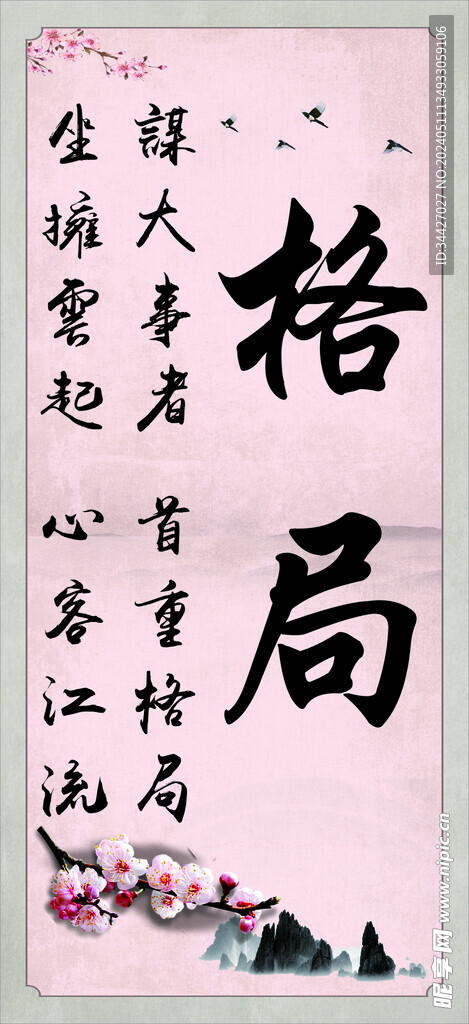 格局
謀大事者 首重格局
坐擁雲起 心客江流
ID:34427027 NO:20240511134933059106
昵享网 www.nipic.cn